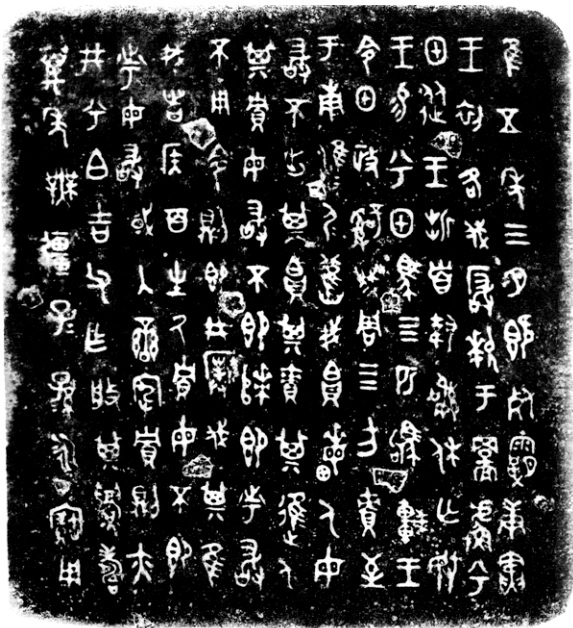 隹五年三月既死霸庚寅
王初各伐玁狁于䣙𠭯兮
甲從王折首執訊休亡敃
王易兮甲馬四匹駒車王
令甲政𤔲成周四方責至
于南淮尸淮尸舊我𢂷畮人毋
敢不出其𢂷其責其進人
其貯毋敢不即次即市敢
不用令則即井撲伐其隹
我者侯百生氒貯毋不即
市毋敢或入蠻宄貯則亦
井兮白吉父乍般其眉壽
萬年無疆子子孫孫永寶用